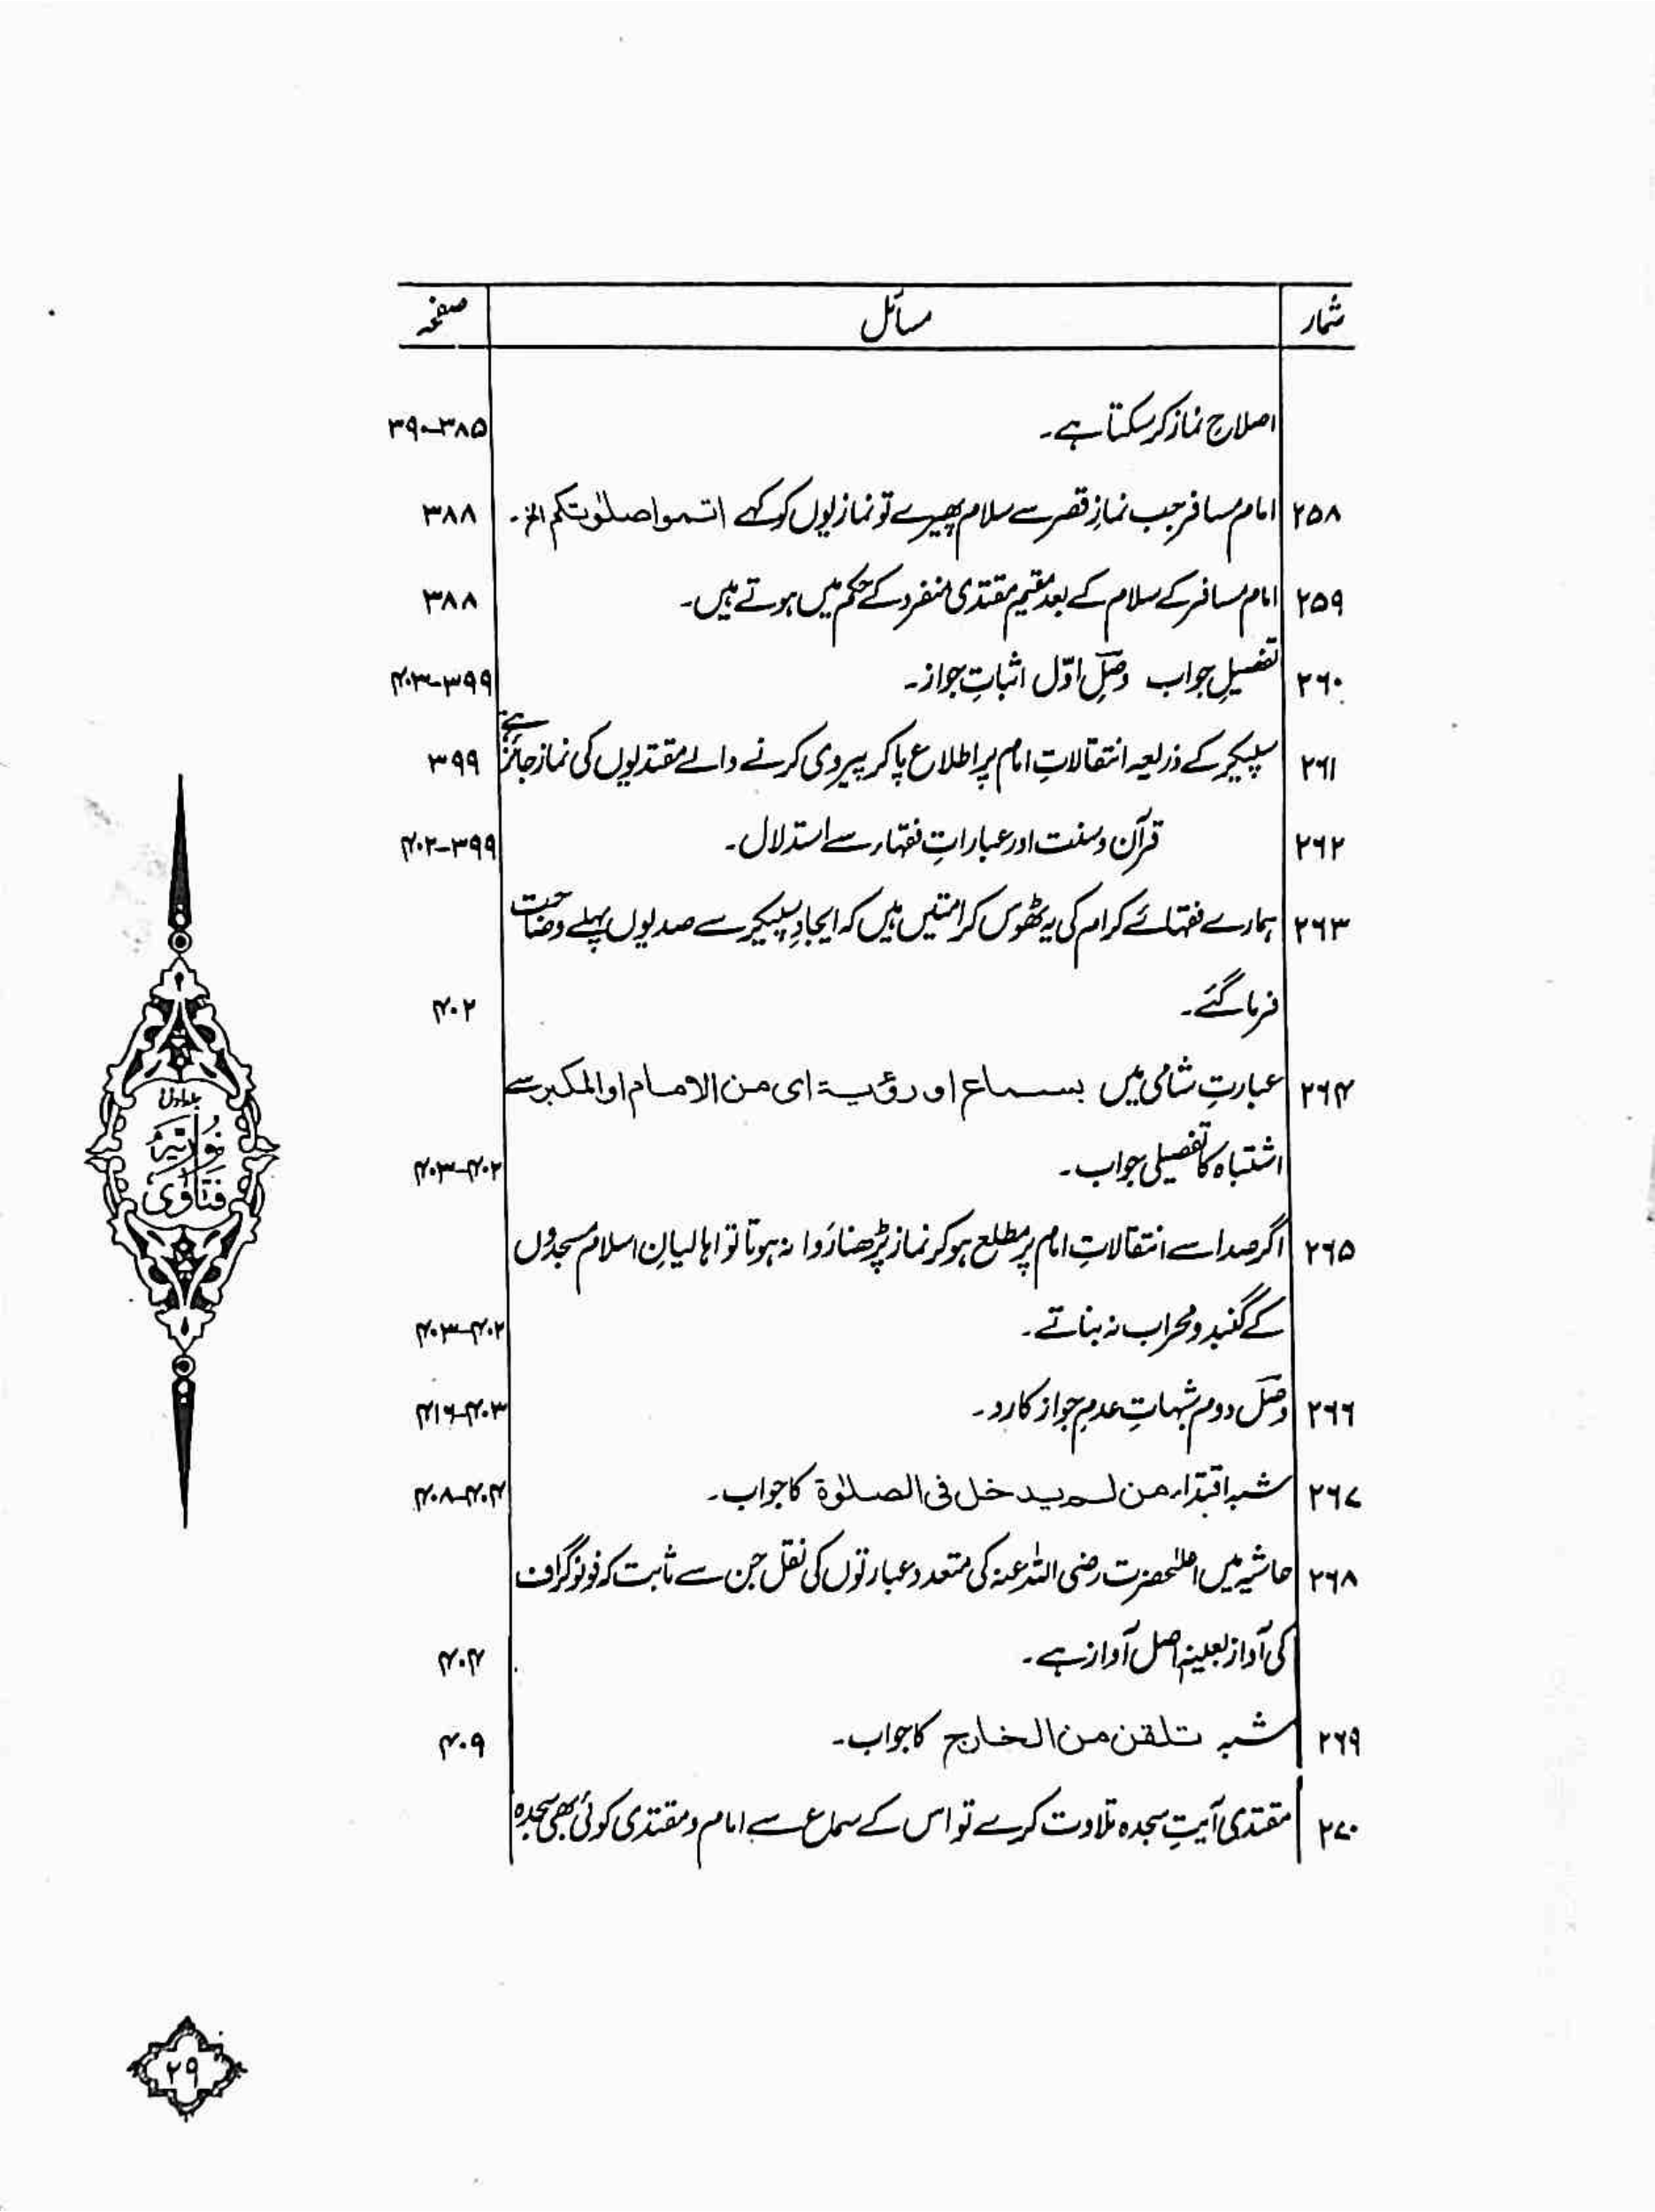 شمار مسائل صفحہ
اصلاح نماز کر سکتا ہے۔ ۳۸۵-۳۹۰
۲۵۸ امام مسافر جب نمازِ قصر سے سلام پھیرے تو نمازیوں کو کہے اتموا صلوٰتکم الخ۔ ۳۸۸
۲۵۹ امام مسافر کے سلام کے بعد مقیم مقتدی منفرد کے حکم میں ہوتے ہیں۔ ۳۸۸
۲۶۰ تفصیلِ جواب وصلِ اوّل اثباتِ جواز۔ ۳۹۹-۴۰۳
۲۶۱ سپیکر کے ذریعہ انتقالاتِ امام پر اطلاع پا کر پیروی کرنے والے مقتدیوں کی نماز جائز ہے ۳۹۹
۲۶۲ قرآن و سنت اور عباراتِ فقہاء سے استدلال۔ ۳۹۹-۴۰۲
۲۶۳ ہمارے فقہائے کرام کی یہ ٹھوس کرامتیں ہیں کہ ایجادِ سپیکر سے صدیوں پہلے وضاحت
فرما گئے۔ ۴۰۲
۲۶۴ عبارتِ شامی میں بسماع او رؤیۃ ای من الامام او المکبر سے
اشتباہ کا تفصیلی جواب۔ ۴۰۲-۴۰۳
۲۶۵ اگر صدا سے انتقالاتِ امام پر مطلع ہو کر نماز پڑھنا رَوا نہ ہوتا تو اہالیانِ اسلام مسجدوں
کے گنبد و محراب نہ بناتے۔ ۴۰۲-۴۰۳
۲۶۶ وصل دوم شبہاتِ عدمِ جواز کا رد۔ ۴۰۳-۴۱۶
۲۶۷ شبہ اقتداء من لم یدخل فی الصلوٰۃ کا جواب۔ ۴۰۴-۴۰۸
۲۶۸ حاشیہ میں اعلیٰحضرت رضی اللہ عنہ کی متعدد عبارتوں کی نقل جن سے ثابت کہ فونوگراف
کی آواز بعینہٖ اصل آواز ہے۔ ۴۰۴
۲۶۹ شبہ تلقن من الخارج کا جواب۔ ۴۰۹
۲۷۰ مقتدی آیتِ سجدہ تلاوت کرے تو اس کے سماع سے امام و مقتدی کوئی بھی سجدہ
جلد اول
فتاویٰ نوریہ
۲۹